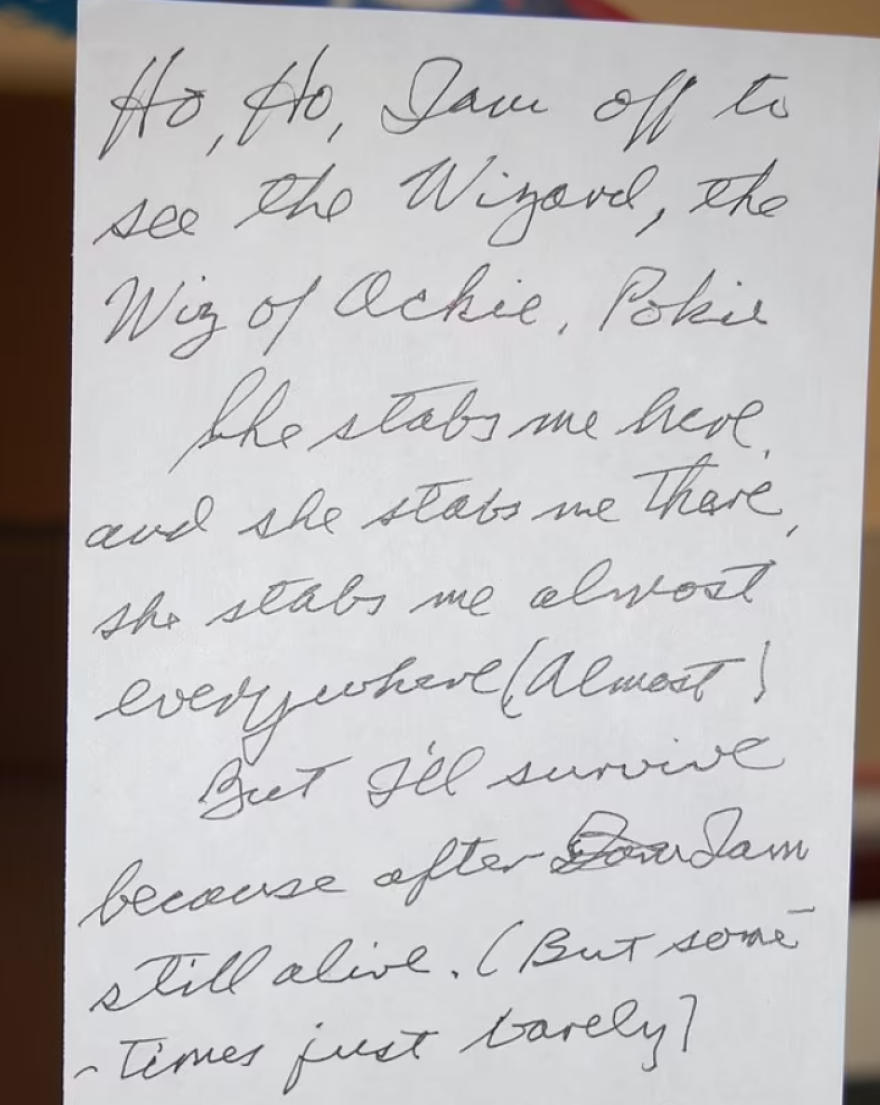 Ho, Ho, I am off to
see the Wizard, the
Wiz of Ackie, Pokie
She stabs me here,
and she stabs me there,
she stabs me almost
everywhere (Almost)
But I'll survive
because after I am
still alive. (But some-
-times just barely)